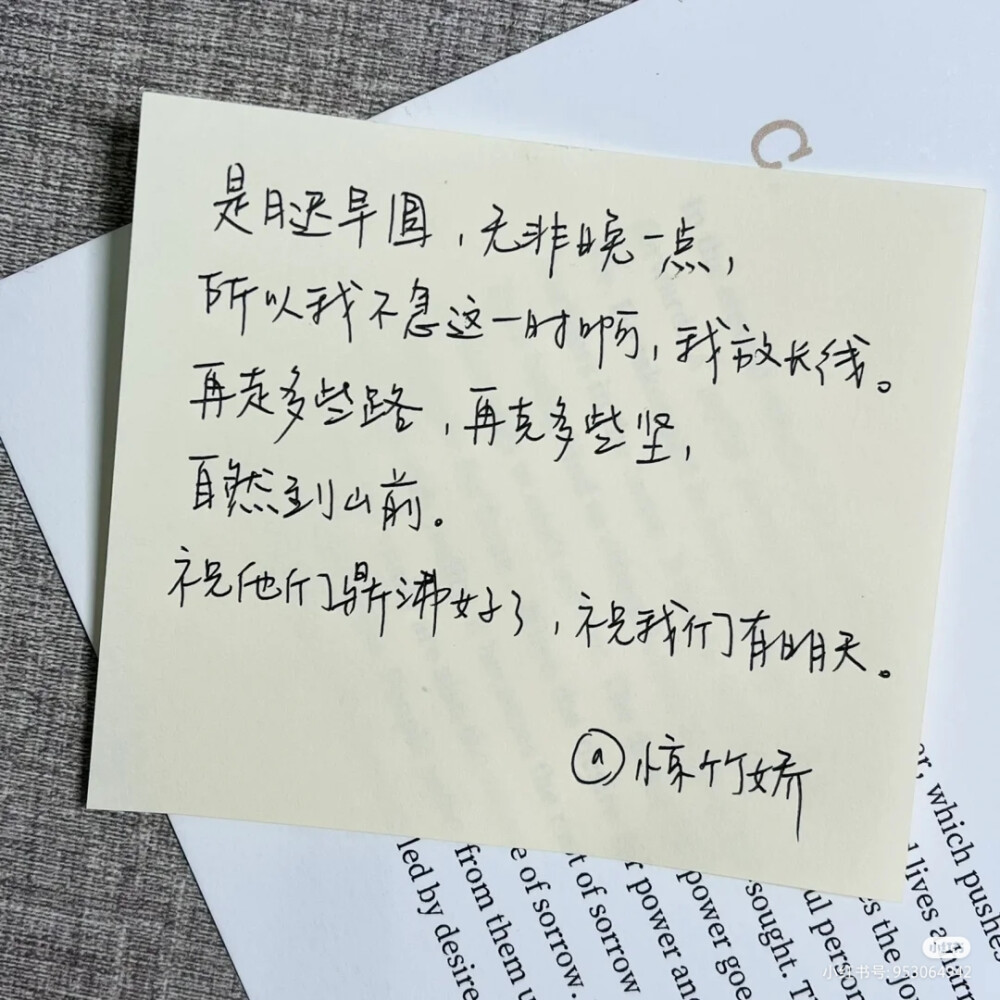 是月迟早圆，无非晚一点，
所以我不急这一时啊，我放长线。
再走多些路，再克多些坚，
自然到山前。
祝他们鼎沸好了，祝我们有明天。
@惊竹娇
C
er, which pushes
led by desire
from them u
e of sorrow.
t of sorrow
r power and
power goe
sought. T
ul person
es the jo
lives a
小红书
小红书号:953064942